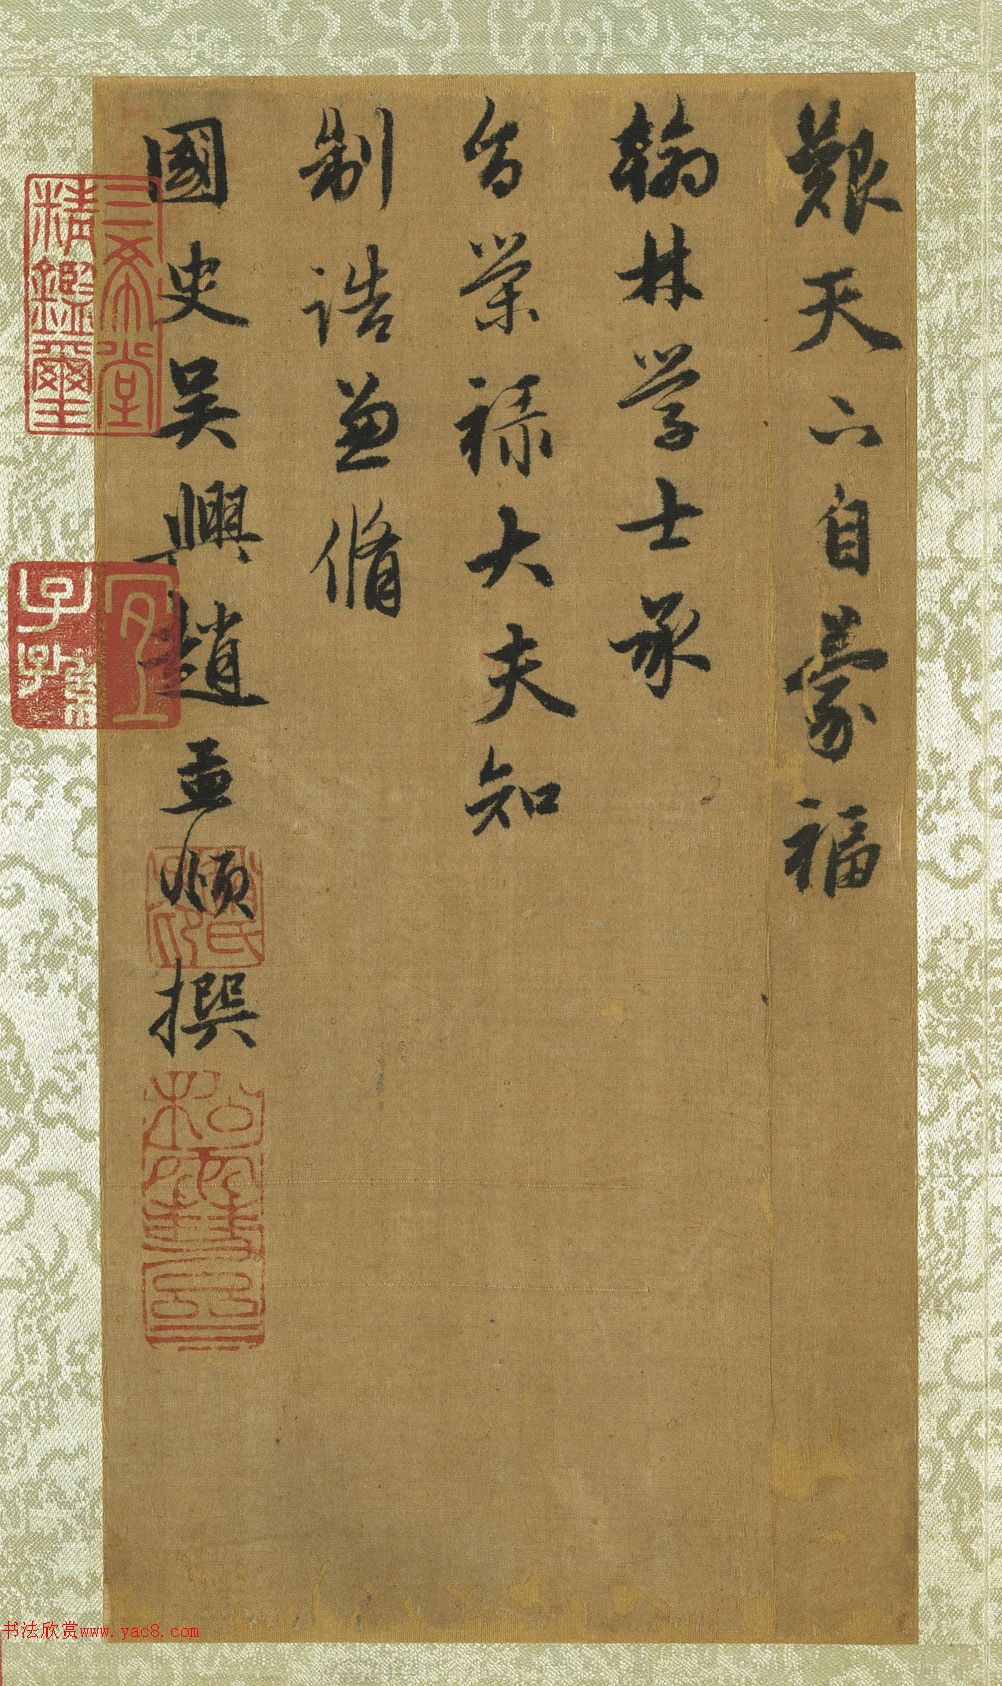 艱天自蒙福
翰林學士承
旨榮祿大夫知
制誥兼脩
國史吳興趙孟頫撰
三希堂
精鑑璽
宜子孫
松雪齋
书法欣赏www.yac8.com